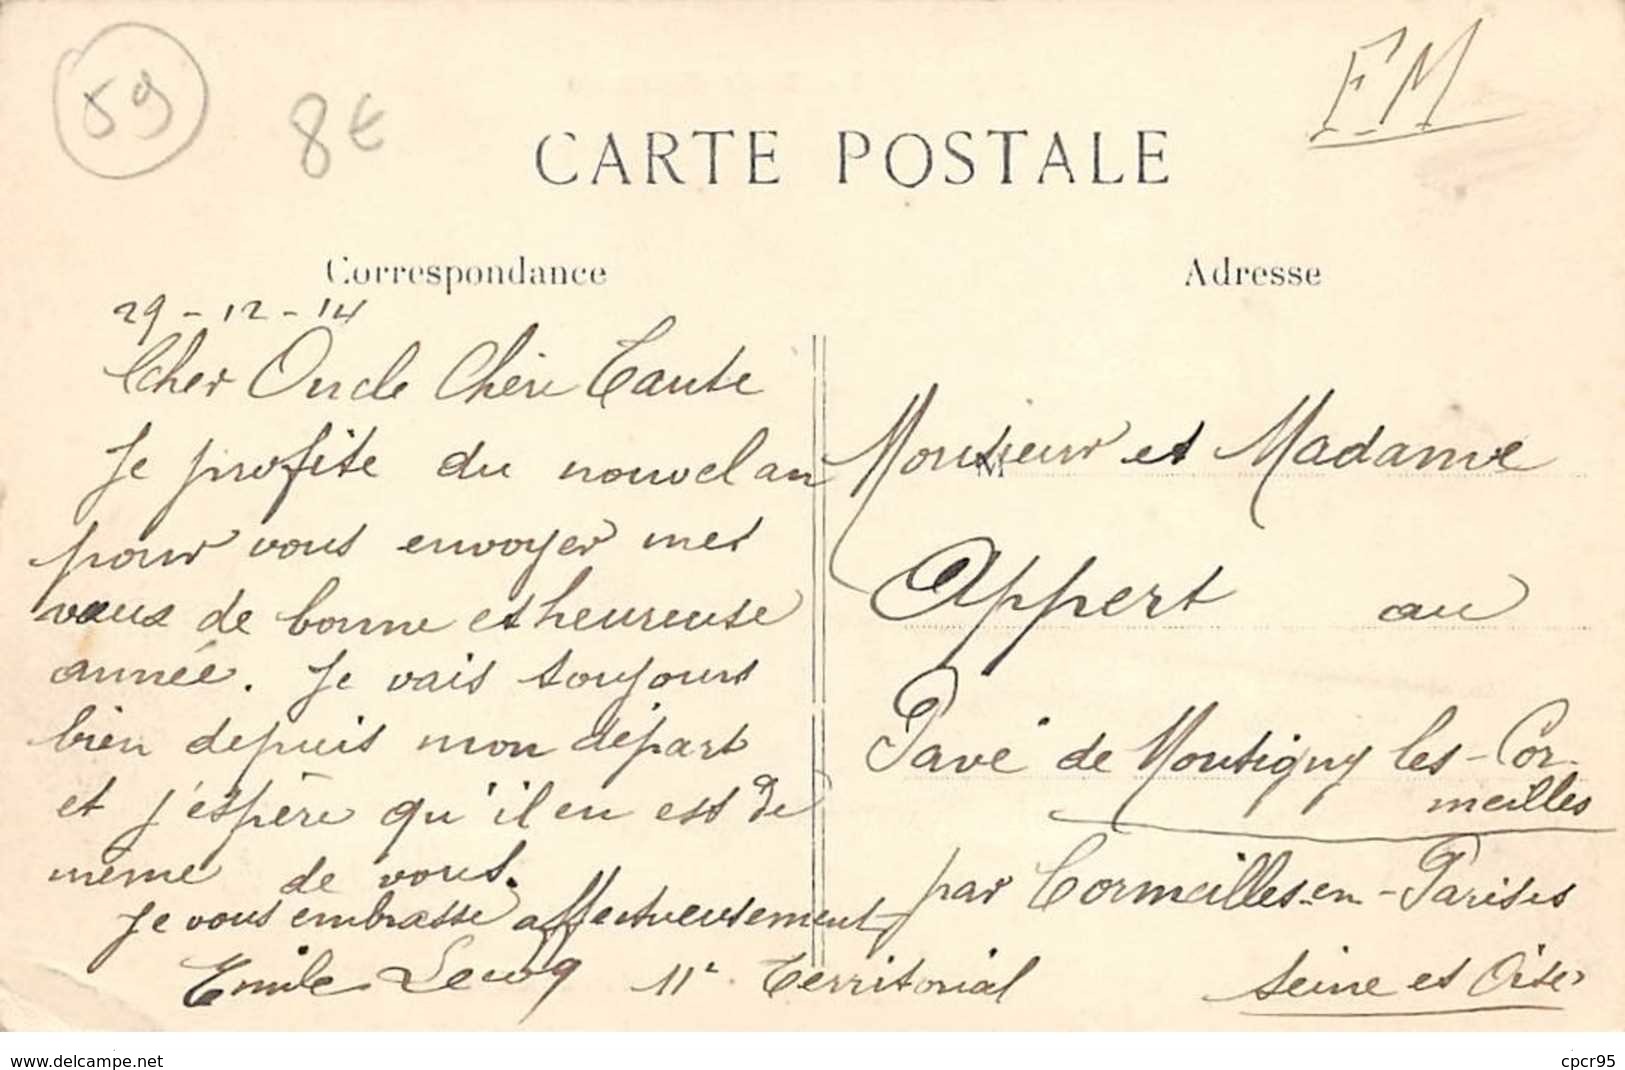 59
8€
FM
CARTE POSTALE
Correspondance
29-12-14
Cher Oncle Chère Tante
Je profite du nouvel an
pour vous envoyer mes
vœux de bonne et heureuse
année. Je vais toujours
bien depuis mon départ
et j'espère qu'il en est de
même de vous.
Je vous embrasse affectueusement
Emile 11e Territorial
Adresse
Monsieur et Madame
Appert au
Pavé de Montigny les-Cor-
meilles
par Cormeilles-en-Parisis
Seine et Oise
www.delcampe.net
cpcr95